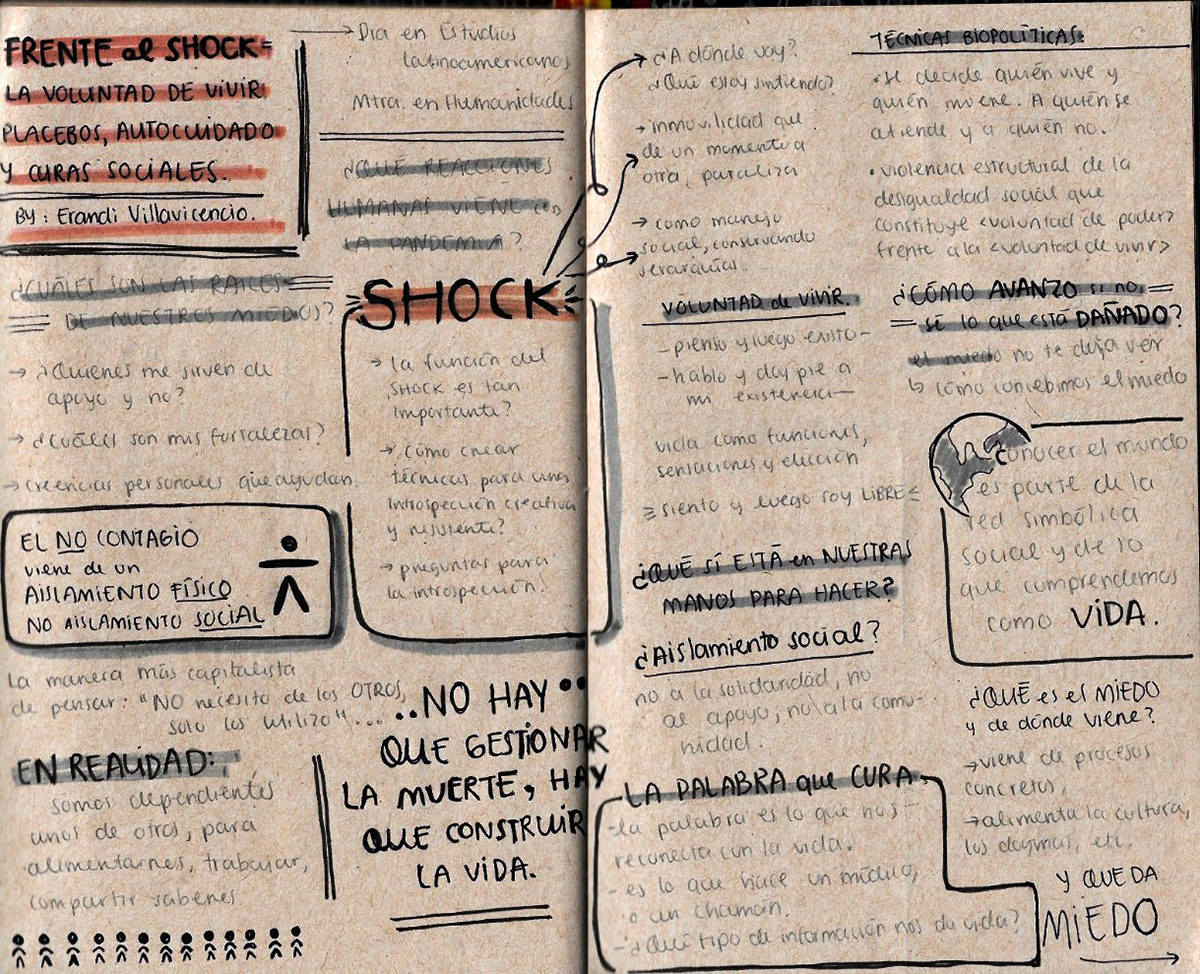 FRENTE al SHOCK:
LA VOLUNTAD DE VIVIR.
PLACEBOS, AUTOCUIDADO
Y CURAS SOCIALES.
BY: Erandi Villavicencio.
→ Dra en Estudios
Latinoamericanos
Mtra. en Humanidades
¿QUÉ REACCIONES
HUMANAS VIENE CON
LA PANDEMIA?
¿CUÁLES SON LAS RAICES
DE NUESTROS MIEDOS?
→ ¿Quienes me sirven de
apoyo y no?
→ ¿Cuáles son mis fortalezas?
→ creencias personales que ayudan.
EL NO CONTAGIO
viene de un
AISLAMIENTO FÍSICO
NO AISLAMIENTO SOCIAL
La manera más capitalista
de pensar: "NO necesito de los OTROS,
solo los utilizo"...
EN REALIDAD:
somos dependientes
unos de otros, para
alimentarnes, trabajar,
compartir saberes.
SHOCK
→ la función del
SHOCK es tan
importante?
→ ¿cómo crear
técnicas para una
introspección creativa
y resistente?
→ preguntas para
la introspección.
...NO HAY
QUE GESTIONAR
LA MUERTE, HAY
QUE CONSTRUIR
LA VIDA.
→ ¿A dónde voy?
¿Qué estoy sintiendo?
→ inmovilidad que
de un momento a
otra, paraliza
→ como manejo
social, conservando
jerarquías.
VOLUNTAD de VIVIR.
- pienso y luego existo -
- hablo y doy pie a
mi existencia -
vida como funciones,
sensaciones y elección
siento y luego soy LIBRE
¿QUÉ SÍ ESTÁ en NUESTRAS
MANOS PARA HACER?
¿Aislamiento social?
no a la solidaridad, no
al apoyo, no a la comu-
nidad.
LA PALABRA que CURA.
- la palabra es lo que nos
reconecta con la vida.
- es lo que hace un médico,
o un chamán.
- ¿Qué tipo de información nos da vida?
TÉCNICAS BIOPOLÍTICAS:
• se decide quién vive y
quién muere. A quién se
atiende y a quién no.
• violencia estructural de la
desigualdad social que
constituye <voluntad de poder>
frente a la <voluntad de vivir>
¿CÓMO AVANZO si no
sé lo que está DAÑADO?
el miedo no te deja ver
↳ cómo concebimos el miedo
conocer el mundo
es parte de la
red simbólica
social y de lo
que comprendemos
como VIDA.
¿QUÉ es el MIEDO
y de dónde viene?
→ viene de procesos
concretos,
→ alimenta la cultura,
los dogmas, etc.
Y QUEDA
MIEDO